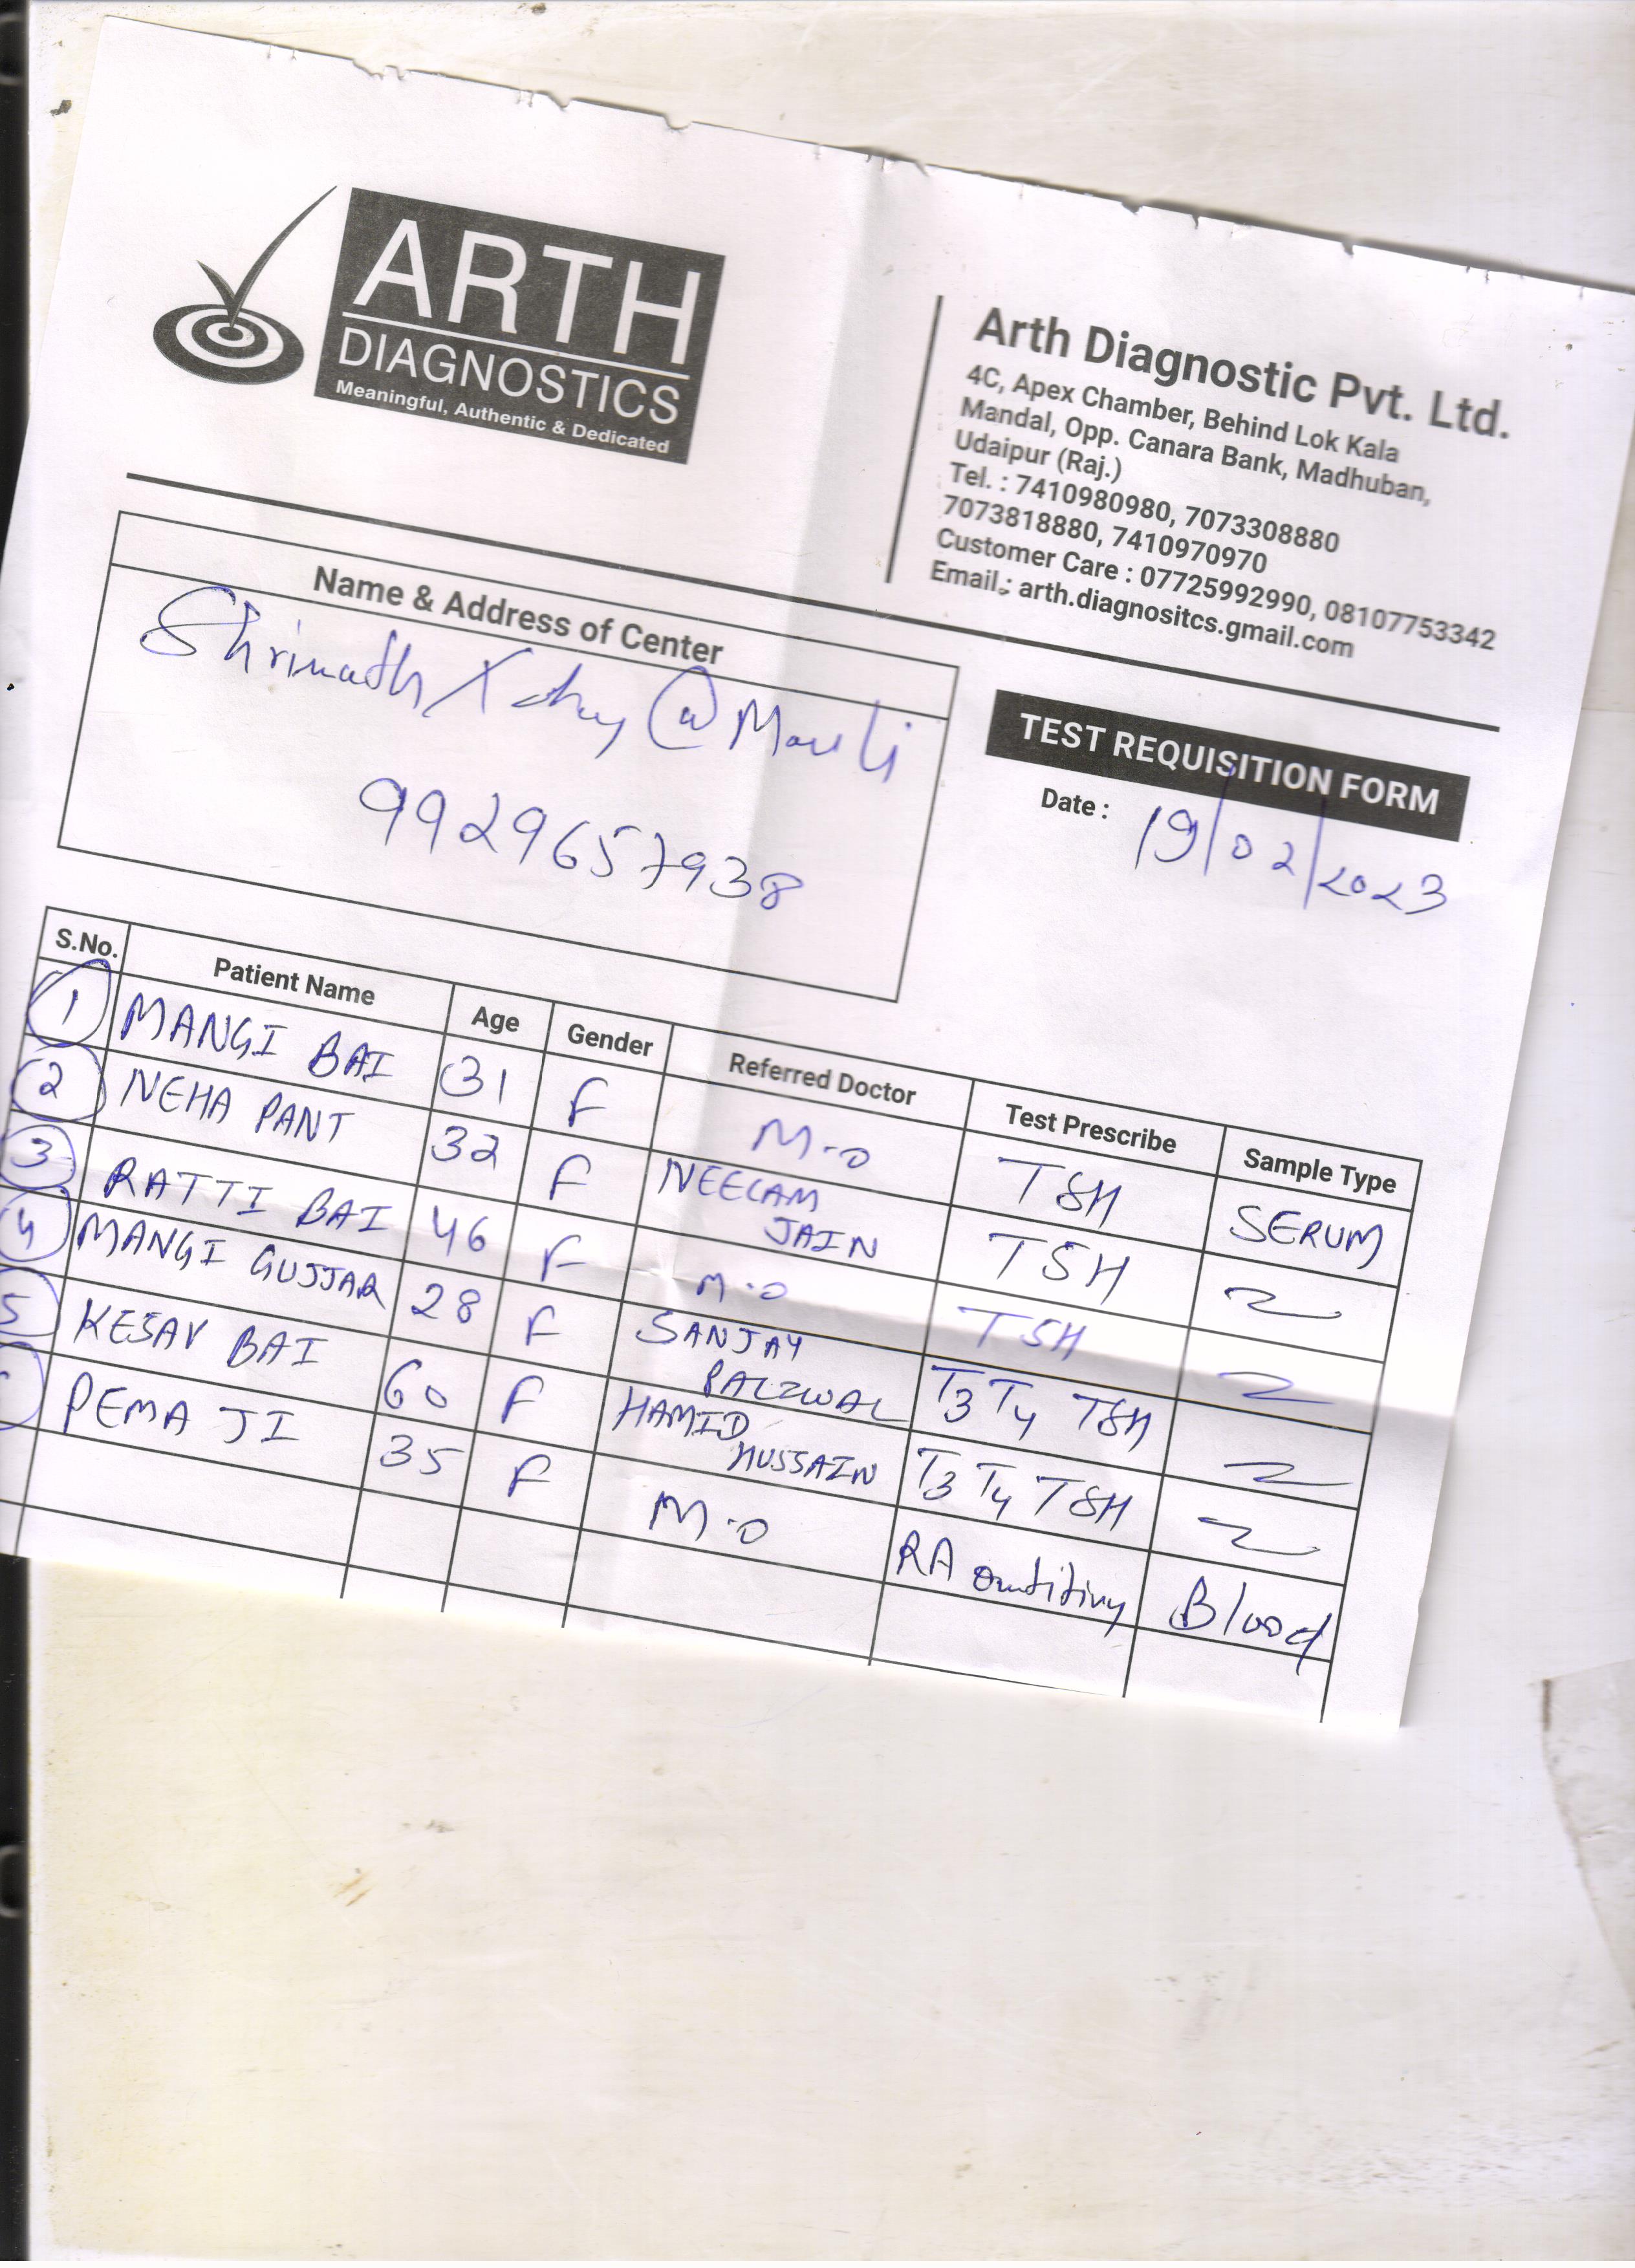 ARTH
DIAGNOSTICS
Meaningful, Authentic & Dedicated
Arth Diagnostic Pvt. Ltd.
4C, Apex Chamber, Behind Lok Kala
Mandal, Opp. Canara Bank, Madhuban,
Udaipur (Raj.)
Tel. : 7410980980, 7073308880
7073818880, 7410970970
Customer Care : 07725992990, 08107753342
Email.: arth.diagnositcs.gmail.com
Name & Address of Center
Shrinath X @ Mavli
9929657938
TEST REQUISITION FORM
Date : 19/02/2023
S.No. Patient Name Age Gender Referred Doctor Test Prescribe Sample Type
1 MANGI BAI 31 F M.O TSH SERUM
2 NEHA PANT 32 F NEELAM JAIN TSH
3 RATTI BAI 46 F M.O TSH
4 MANGI GUJJAR 28 F SANJAY T3 T4 TSH
5 KESAV BAI 60 F HAMID HUSSAIN T3 T4 TSH
PEMA JI 35 F M.O RA Blood